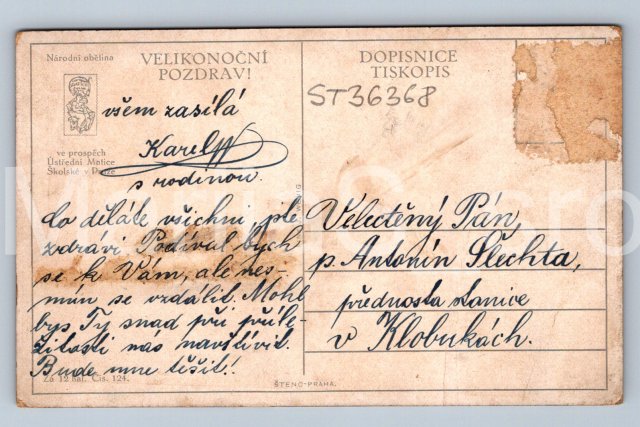 Národní obětina
VELIKONOČNÍ
POZDRAV!
všem zasílá
Karel
ve prospěch
Ústřední Matice
Školské v Praze
s rodinou.
Co děláte všichni, jste
zdrávi. Podíval bych
se k Vám, ale nes-
mím se vzdálit. Mohl
bys Ty snad při příle-
žitosti nás navštívit.
Bude mne těšit!
Za 12 hal. Čís. 124.
DOPISNICE
TISKOPIS
ST36368
Velectěný Pán,
p. Antonín Šlechta,
přednosta stanice
v Klobukách.
ŠTENC-PRAHA.